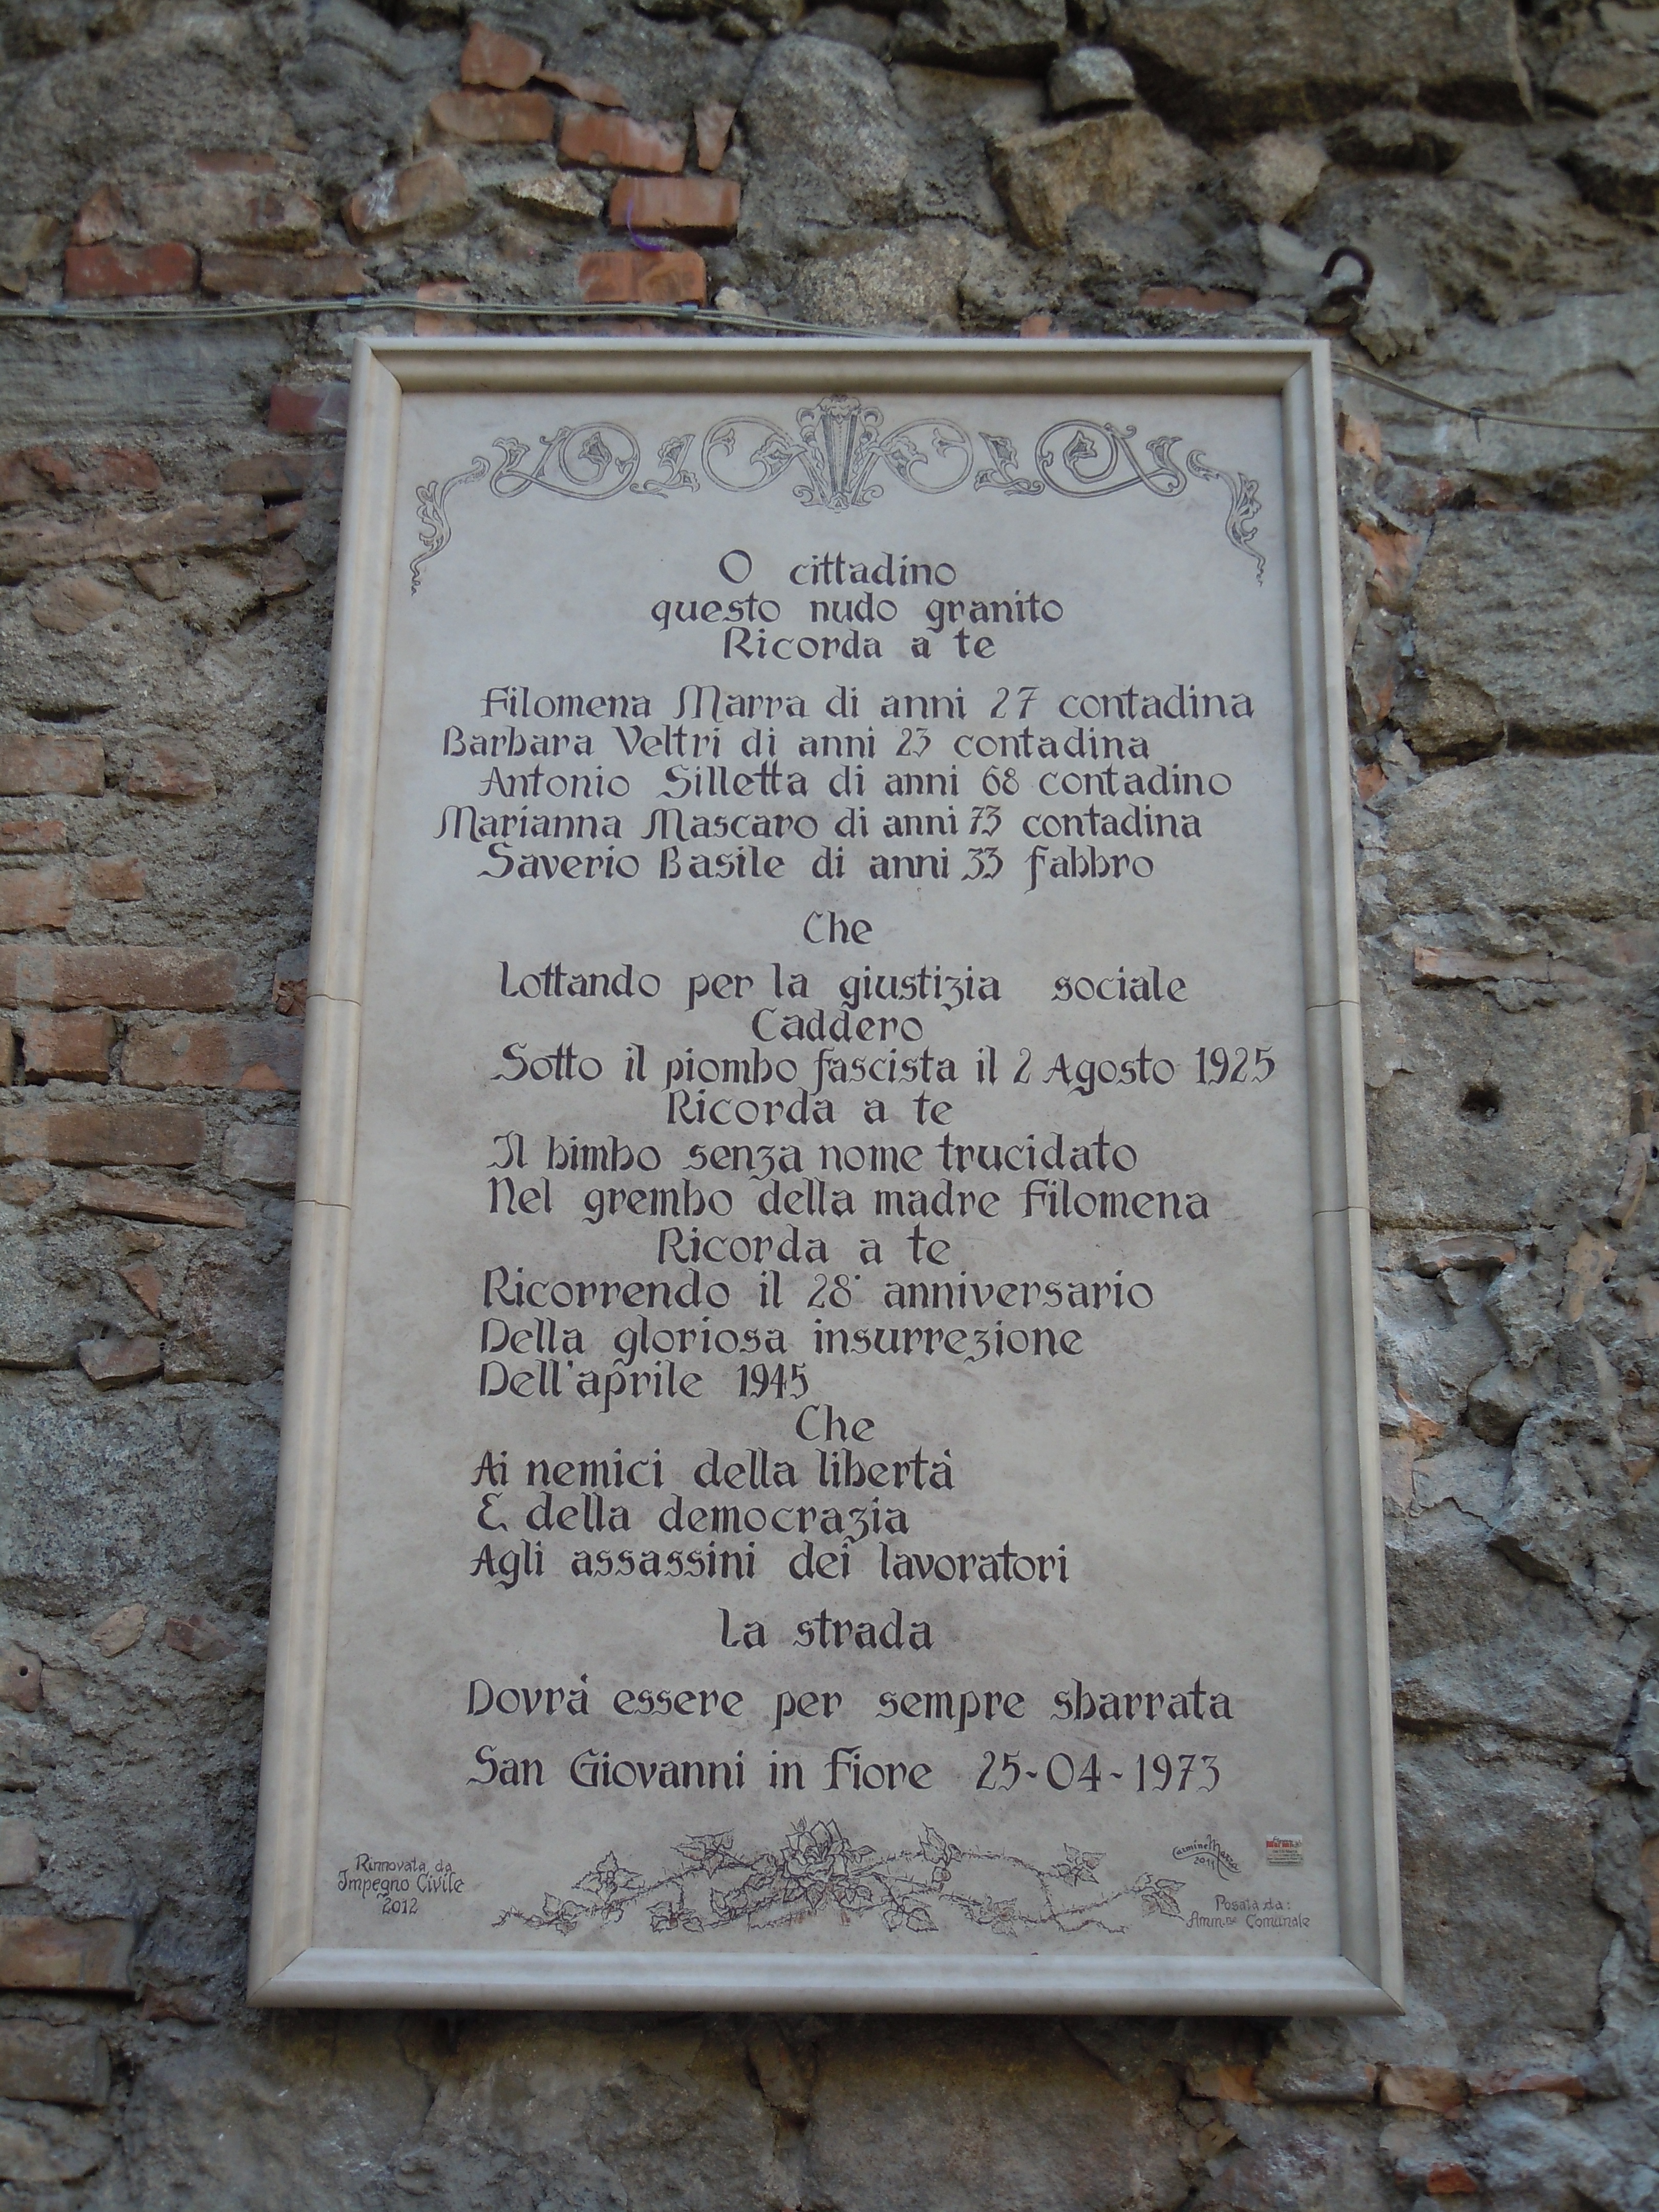 O cittadino
questo nudo granito
Ricorda a te
Filomena Marra di anni 27 contadina
Barbara Veltri di anni 23 contadina
Antonio Silletta di anni 68 contadino
Marianna Mascaro di anni 73 contadina
Saverio Basile di anni 33 fabbro
Che
Lottando per la giustizia sociale
Caddero
Sotto il piombo fascista il 2 Agosto 1925
Ricorda a te
Il bimbo senza nome trucidato
Nel grembo della madre Filomena
Ricorda a te
Ricorrendo il 28° anniversario
Della gloriosa insurrezione
Dell'aprile 1945
Che
Ai nemici della libertà
E della democrazia
Agli assassini dei lavoratori
La strada
Dovrà essere per sempre sbarrata
San Giovanni in Fiore 25-04-1973
Rinnovata da
Impegno Civile
2012
Carmine
2011
Posata da:
Amm.ne Comunale